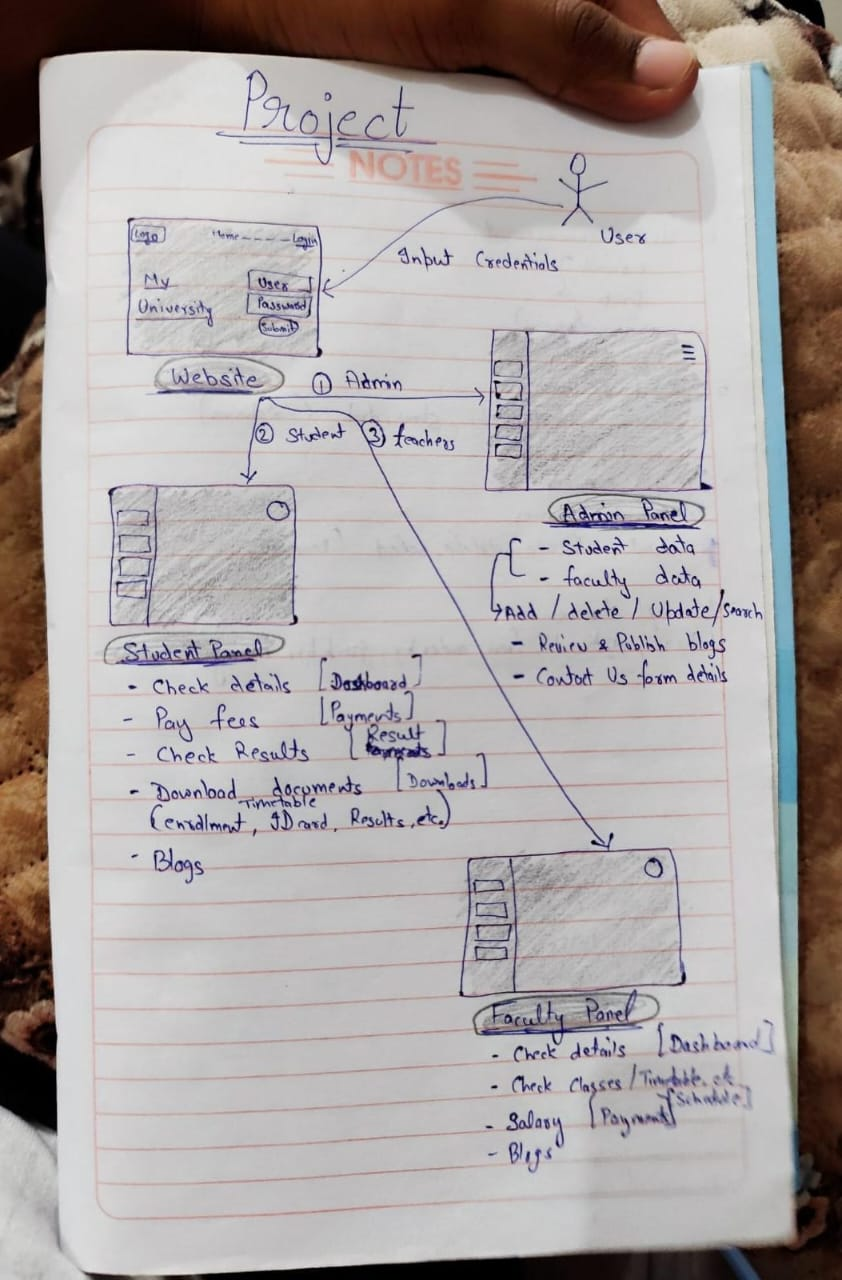 Project
NOTES
User
Input Credentials
Logo Home ---- Login
My University
User
Password
Submit
Website
① Admin
② Student
③ teachers
Admin Panel
- Student data
- faculty data
Add / delete / Update / Search
- Review & Publish blogs
- Contact Us form details
Student Panel
- Check details [Dashboard]
- Pay fees [Payments]
- Check Results [Result]
- Download documents [Downloads]
Timetable
(enrollment, ID card, Results, etc.)
- Blogs
Faculty Panel
- Check details [Dashboard]
- Check Classes / Timetable. etc
[Schedule]
- Salary [Payment]
- Blogs